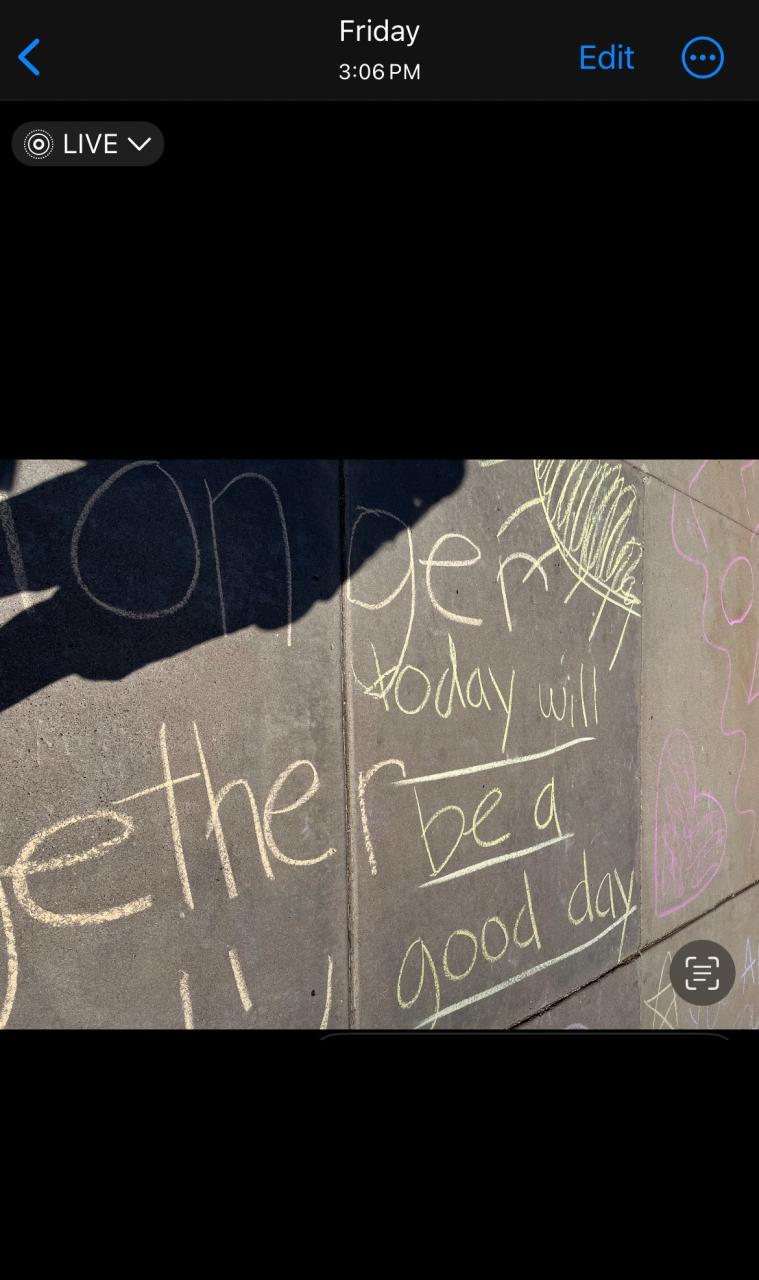 Friday
3:06 PM
Edit
LIVE
onger
today will
ether
be a
good day